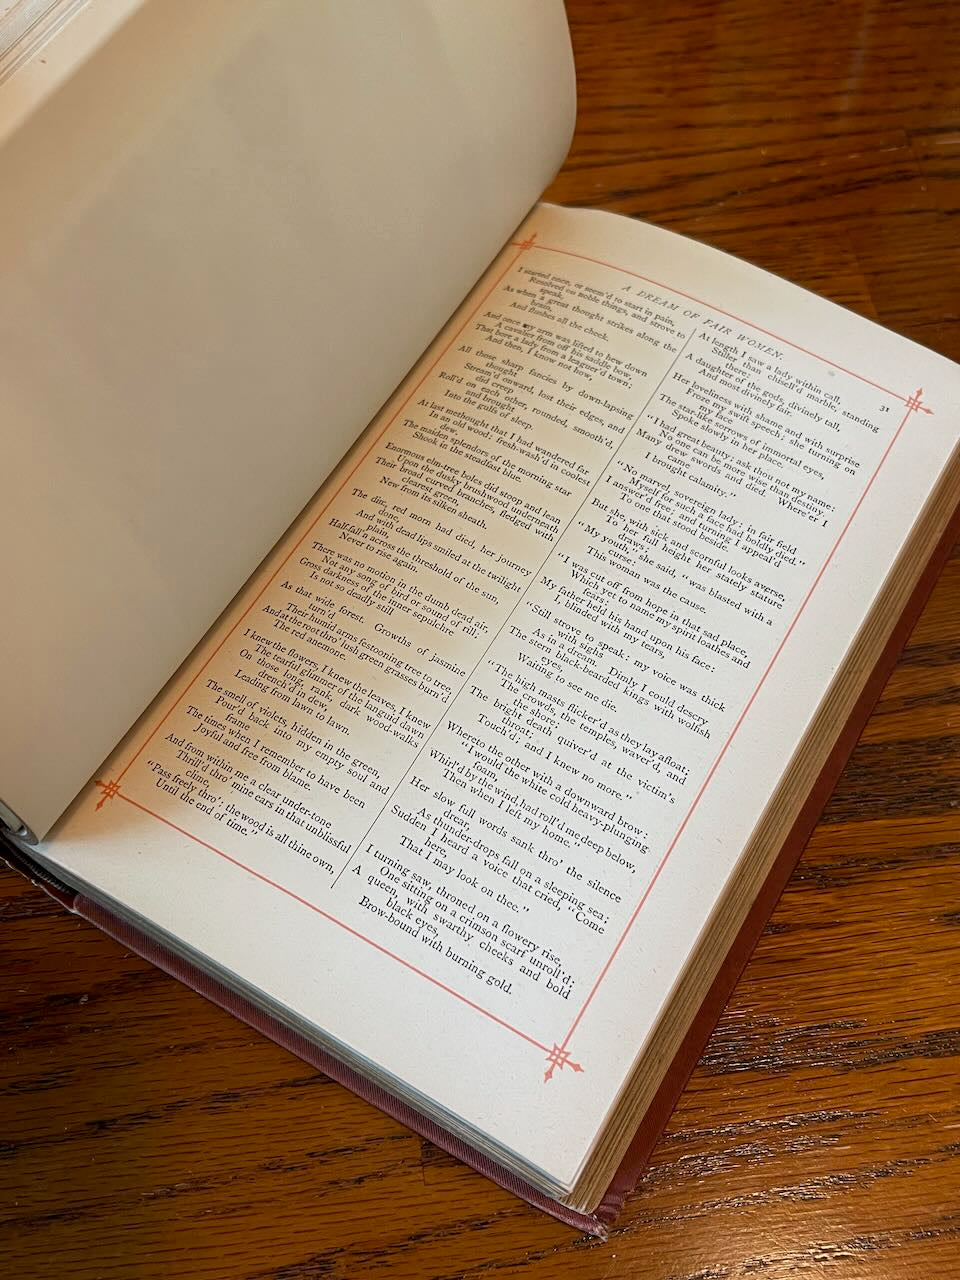 A DREAM OF FAIR WOMEN.
31
I started once, or seem'd to start in pain,
Resolved on noble things, and strove to
speak,
As when a great thought strikes along the
brain,
And flushes all the cheek.
And once my arm was lifted to hew down
A cavalier from off his saddle-bow,
That bore a lady from a leaguer'd town;
And then, I know not how,
All those sharp fancies by down-lapsing
thought
Stream'd onward, lost their edges, and
did creep
Roll'd on each other, rounded, smooth'd,
and brought
Into the gulfs of sleep.
At last methought that I had wander'd far
In an old wood: fresh-wash'd in coolest
dew,
The maiden splendors of the morning star
Shook in the steadfast blue.
Enormous elm-tree boles did stoop and lean
Upon the dusky brushwood underneath
Their broad curved branches, fledged with
clearest green,
New from its silken sheath.
The dim red morn had died, her journey
done,
And with dead lips smiled at the twilight
plain,
Half-fall'n across the threshold of the sun,
Never to rise again.
There was no motion in the dumb dead air,
Not any song of bird or sound of rill;
Gross darkness of the inner sepulchre
Is not so deadly still
As that wide forest. Growths of jasmine
turn'd
Their humid arms festooning tree to tree,
And at the root thro' lush green grasses burn'd
The red anemone.
I knew the flowers, I knew the leaves, I knew
The tearful glimmer of the languid dawn
On those long, rank, dark wood-walks
drench'd in dew,
Leading from lawn to lawn.
The smell of violets, hidden in the green,
Pour'd back into my empty soul and
frame
The times when I remember to have been
Joyful and free from blame.
And from within me a clear under-tone
Thrill'd thro' mine ears in that unblissful
clime,
"Pass freely thro': the wood is all thine own,
Until the end of time."
At length I saw a lady within call,
Stiller than chisell'd marble, standing
there;
A daughter of the gods, divinely tall,
And most divinely fair.
Her loveliness with shame and with surprise
Froze my swift speech; she turning on
my face
The star-like sorrows of immortal eyes,
Spoke slowly in her place.
"I had great beauty; ask thou not my name:
No one can be more wise than destiny.
Many drew swords and died. Where'er I
came
I brought calamity."
"No marvel, sovereign lady: in fair field
Myself for such a face had boldly died."
I answer'd free; and turning I appeal'd
To one that stood beside.
But she, with sick and scornful looks averse,
To her full height her stately stature
draws;
"My youth," she said, "was blasted with a
curse:
This woman was the cause.
"I was cut off from hope in that sad place,
Which yet to name my spirit loathes and
fears:
My father held his hand upon his face;
I, blinded with my tears,
"Still strove to speak: my voice was thick
with sighs
As in a dream. Dimly I could descry
The stern black-bearded kings with wolfish
eyes,
Waiting to see me die.
"The high masts flicker'd as they lay afloat;
The crowds, the temples, waver'd, and
the shore;
The bright death quiver'd at the victim's
throat;
Touch'd; and I knew no more."
Whereto the other with a downward brow:
"I would the white cold heavy-plunging
foam,
Whirl'd by the wind, had roll'd me deep below,
Then when I left my home."
Her slow full words sank thro' the silence
drear,
As thunder-drops fall on a sleeping sea:
Sudden I heard a voice that cried, "Come
here,
That I may look on thee."
I turning saw, throned on a flowery rise,
One sitting on a crimson scarf unroll'd;
A queen, with swarthy cheeks and bold
black eyes,
Brow-bound with burning gold.